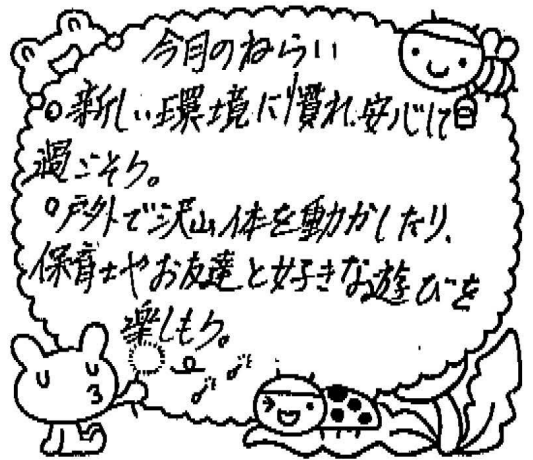 今月のねらい
○新しい環境に慣れ、安心して
過ごそう。
○戸外で沢山体を動かしたり、
保育士やお友達と好きな遊びを
楽しもう。